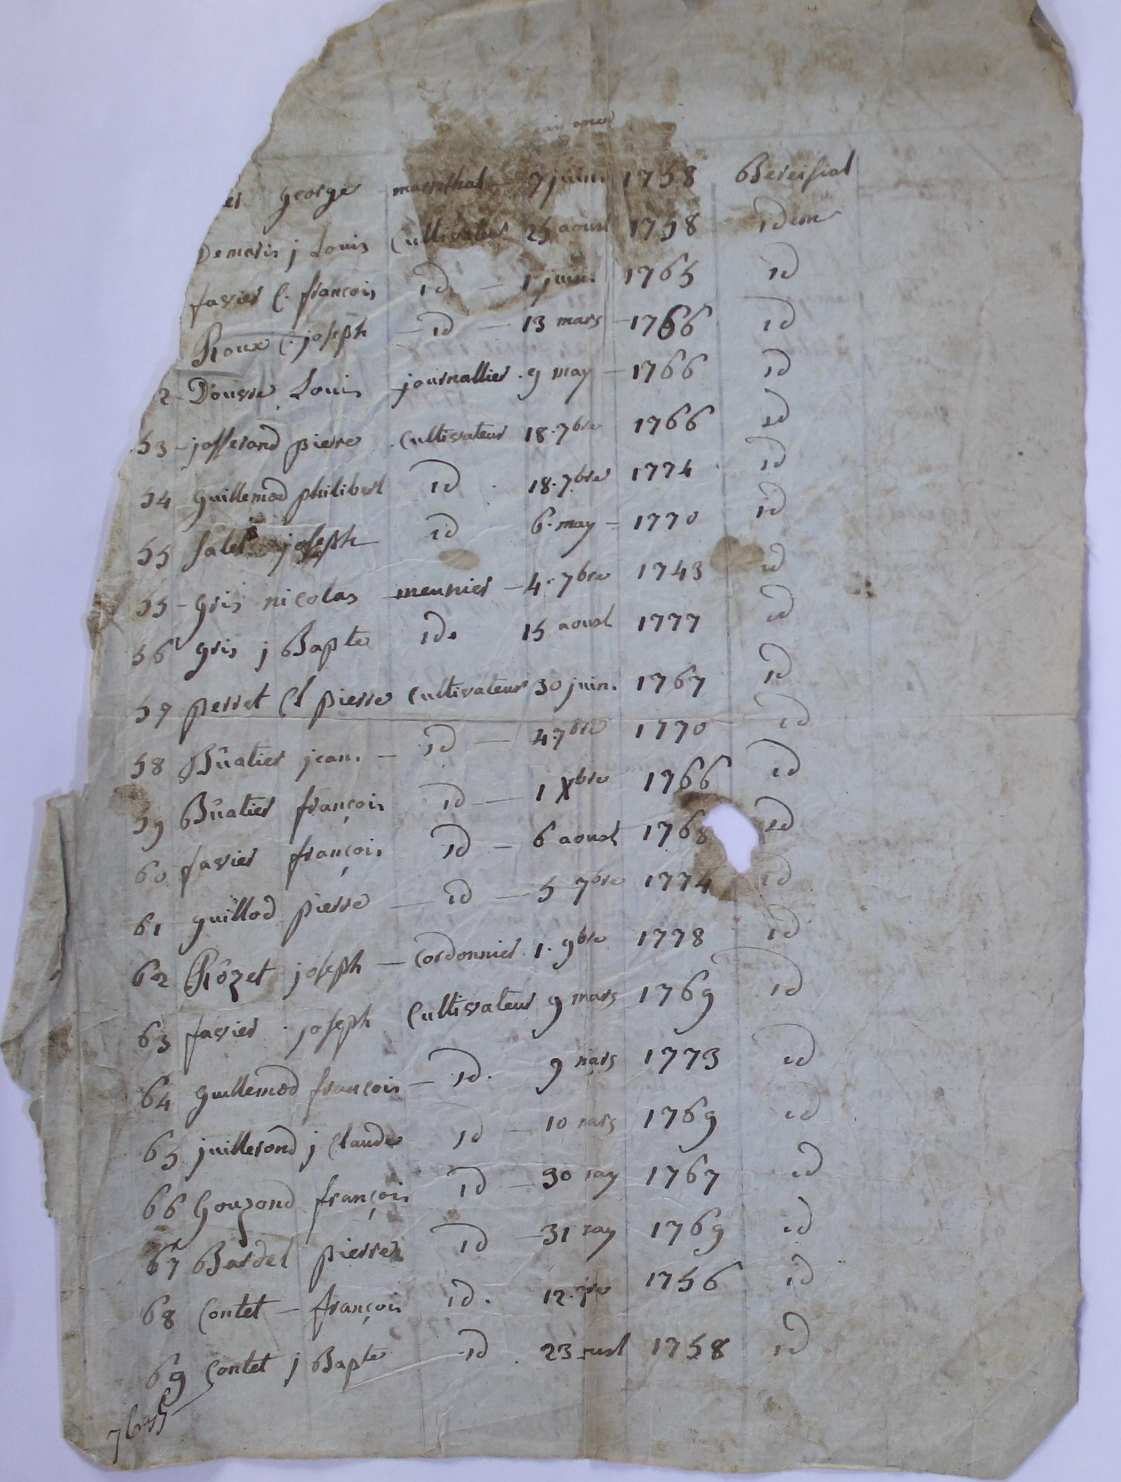 george marechal 7 juin 1758 Bereisiat
Demaris j Louis Cultivateur 25 aoust 1758 idem
favier C. françois id 1 juin 1765 id
Roux C. joseph id 13 mars 1766 id
2 Douvre Louis journallier 9 may 1766 id
53 josserand pierre Cultivateur 18 7bre 1766 id
54 guillemod philibert id 18 7bre 1774 id
55 joseph id 6 may 1770 id
55 gris nicolas meunier 4 7bre 1743 id
56 gris j Bapte id 15 aoust 1777 id
57 perret Cl pierre Cultivateur 30 juin 1767 id
58 Buatier jean id 4 7bre 1770 id
59 Buatier françois id 1 Xbre 1766 id
60 favier françois id 6 aoust 1768 id
61 guillod pierre id 5 7bre 1774 id
62 Rozet joseph Cordonnier 1. 9bre 1778 id
63 favier joseph Cultivateur 9 mars 1769 id
64 guillemod françois id 9 mars 1773 id
65 juillerond j Claude id 10 mars 1769 id
66 gouzond françois id 30 may 1767 id
67 Bardel pierre id 31 may 1769 id
68 Contet françois id 12 1756 id
69 Contet j Bapte id 23 1758 id